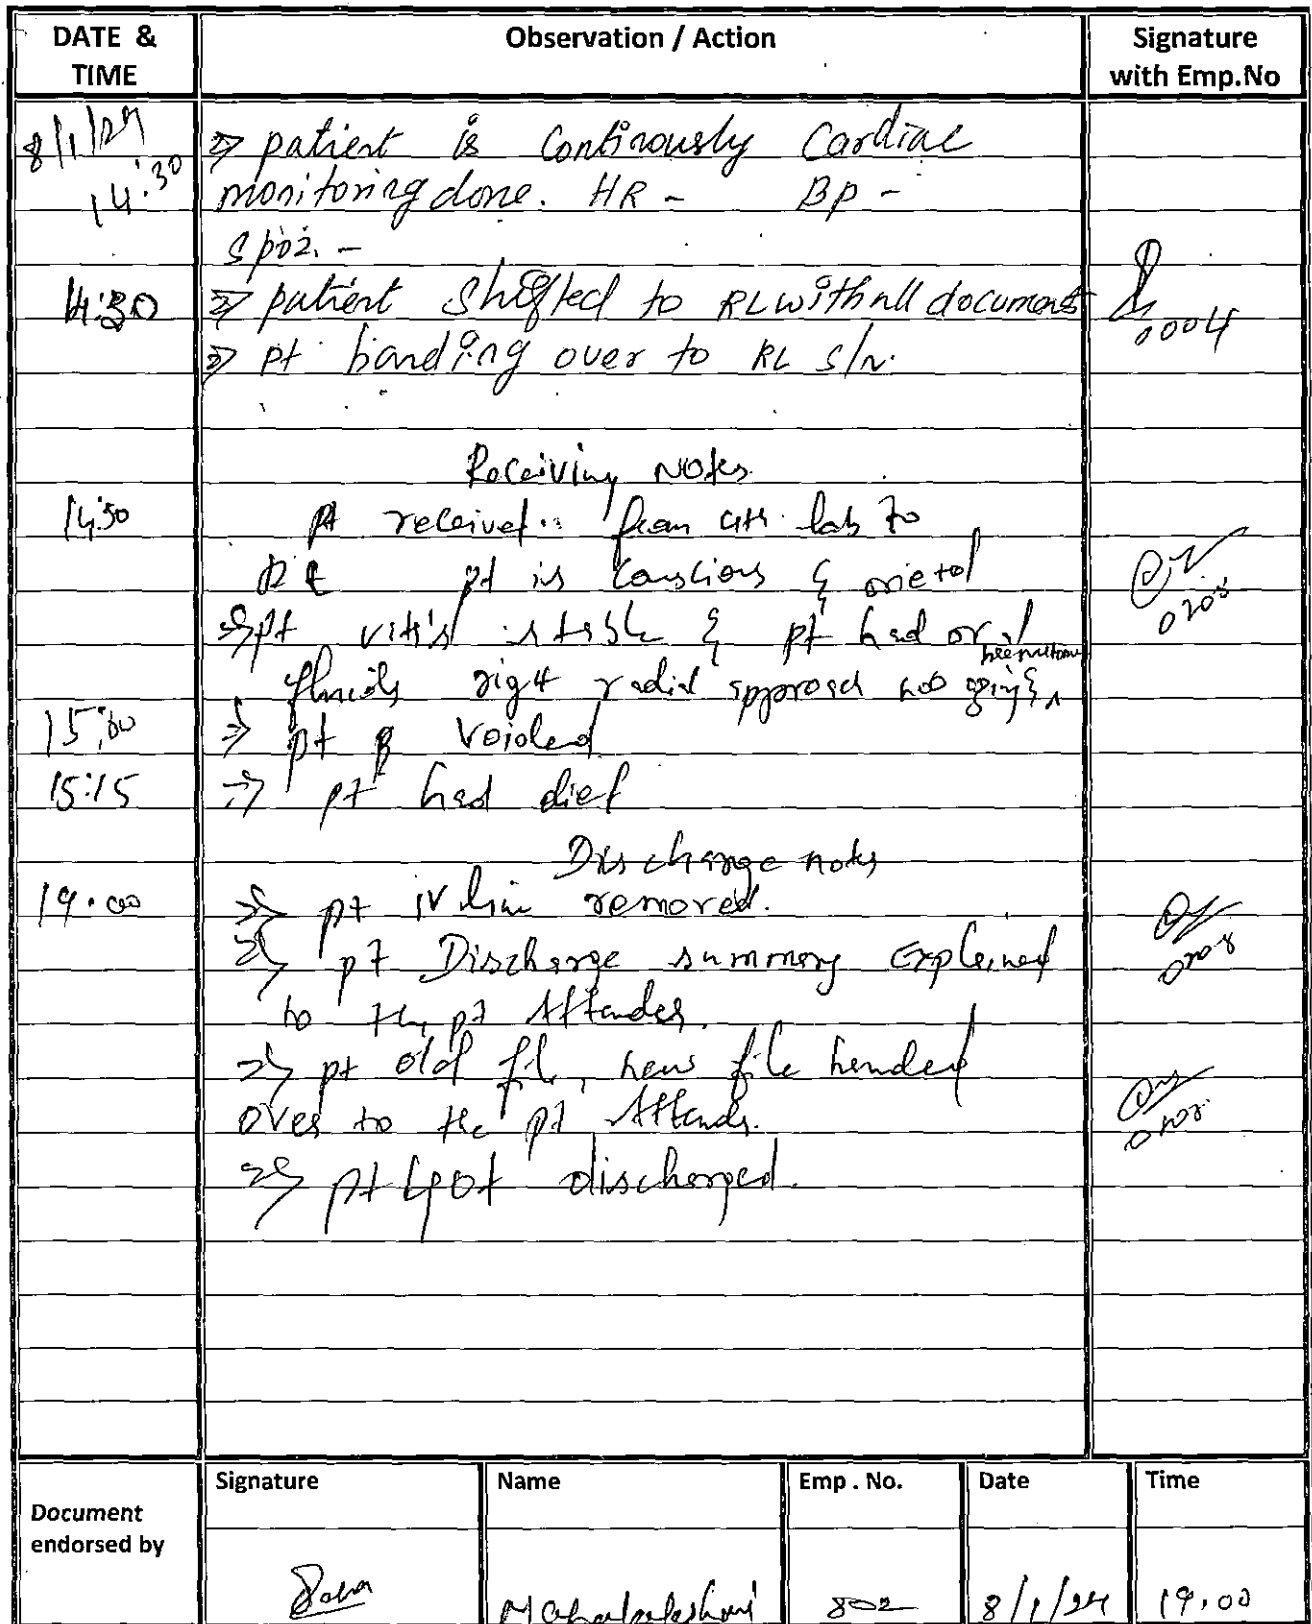 DATE & TIME Observation / Action Signature with Emp.No
8/1/24 14:30 ⇒ patient is Continously Cardiac
monitoring done. HR - BP -
Spo2. -
14:30 ⇒ patient shifted to RL with all document 0004
⇒ pt handing over to RL s/n.
Receiving Notes
14:50 pt received from cath lab to
pt is conscious & orieted
⇒ pt vitis stable & pt had oral 0208
fluids right radial approach
15:00 ⇒ pt voided
15:15 ⇒ pt had diet
Discharge notes
19.00 ⇒ pt IV line removed.
⇒ pt Discharge summary Explained 0208
to the pt Attender.
⇒ pt old file, new file handed
over to the pt Attender. 0208
⇒ pt got discharged.
Document endorsed by Signature Name Emp . No. Date Time
Mahalakshmi 802 8/1/24 19.00